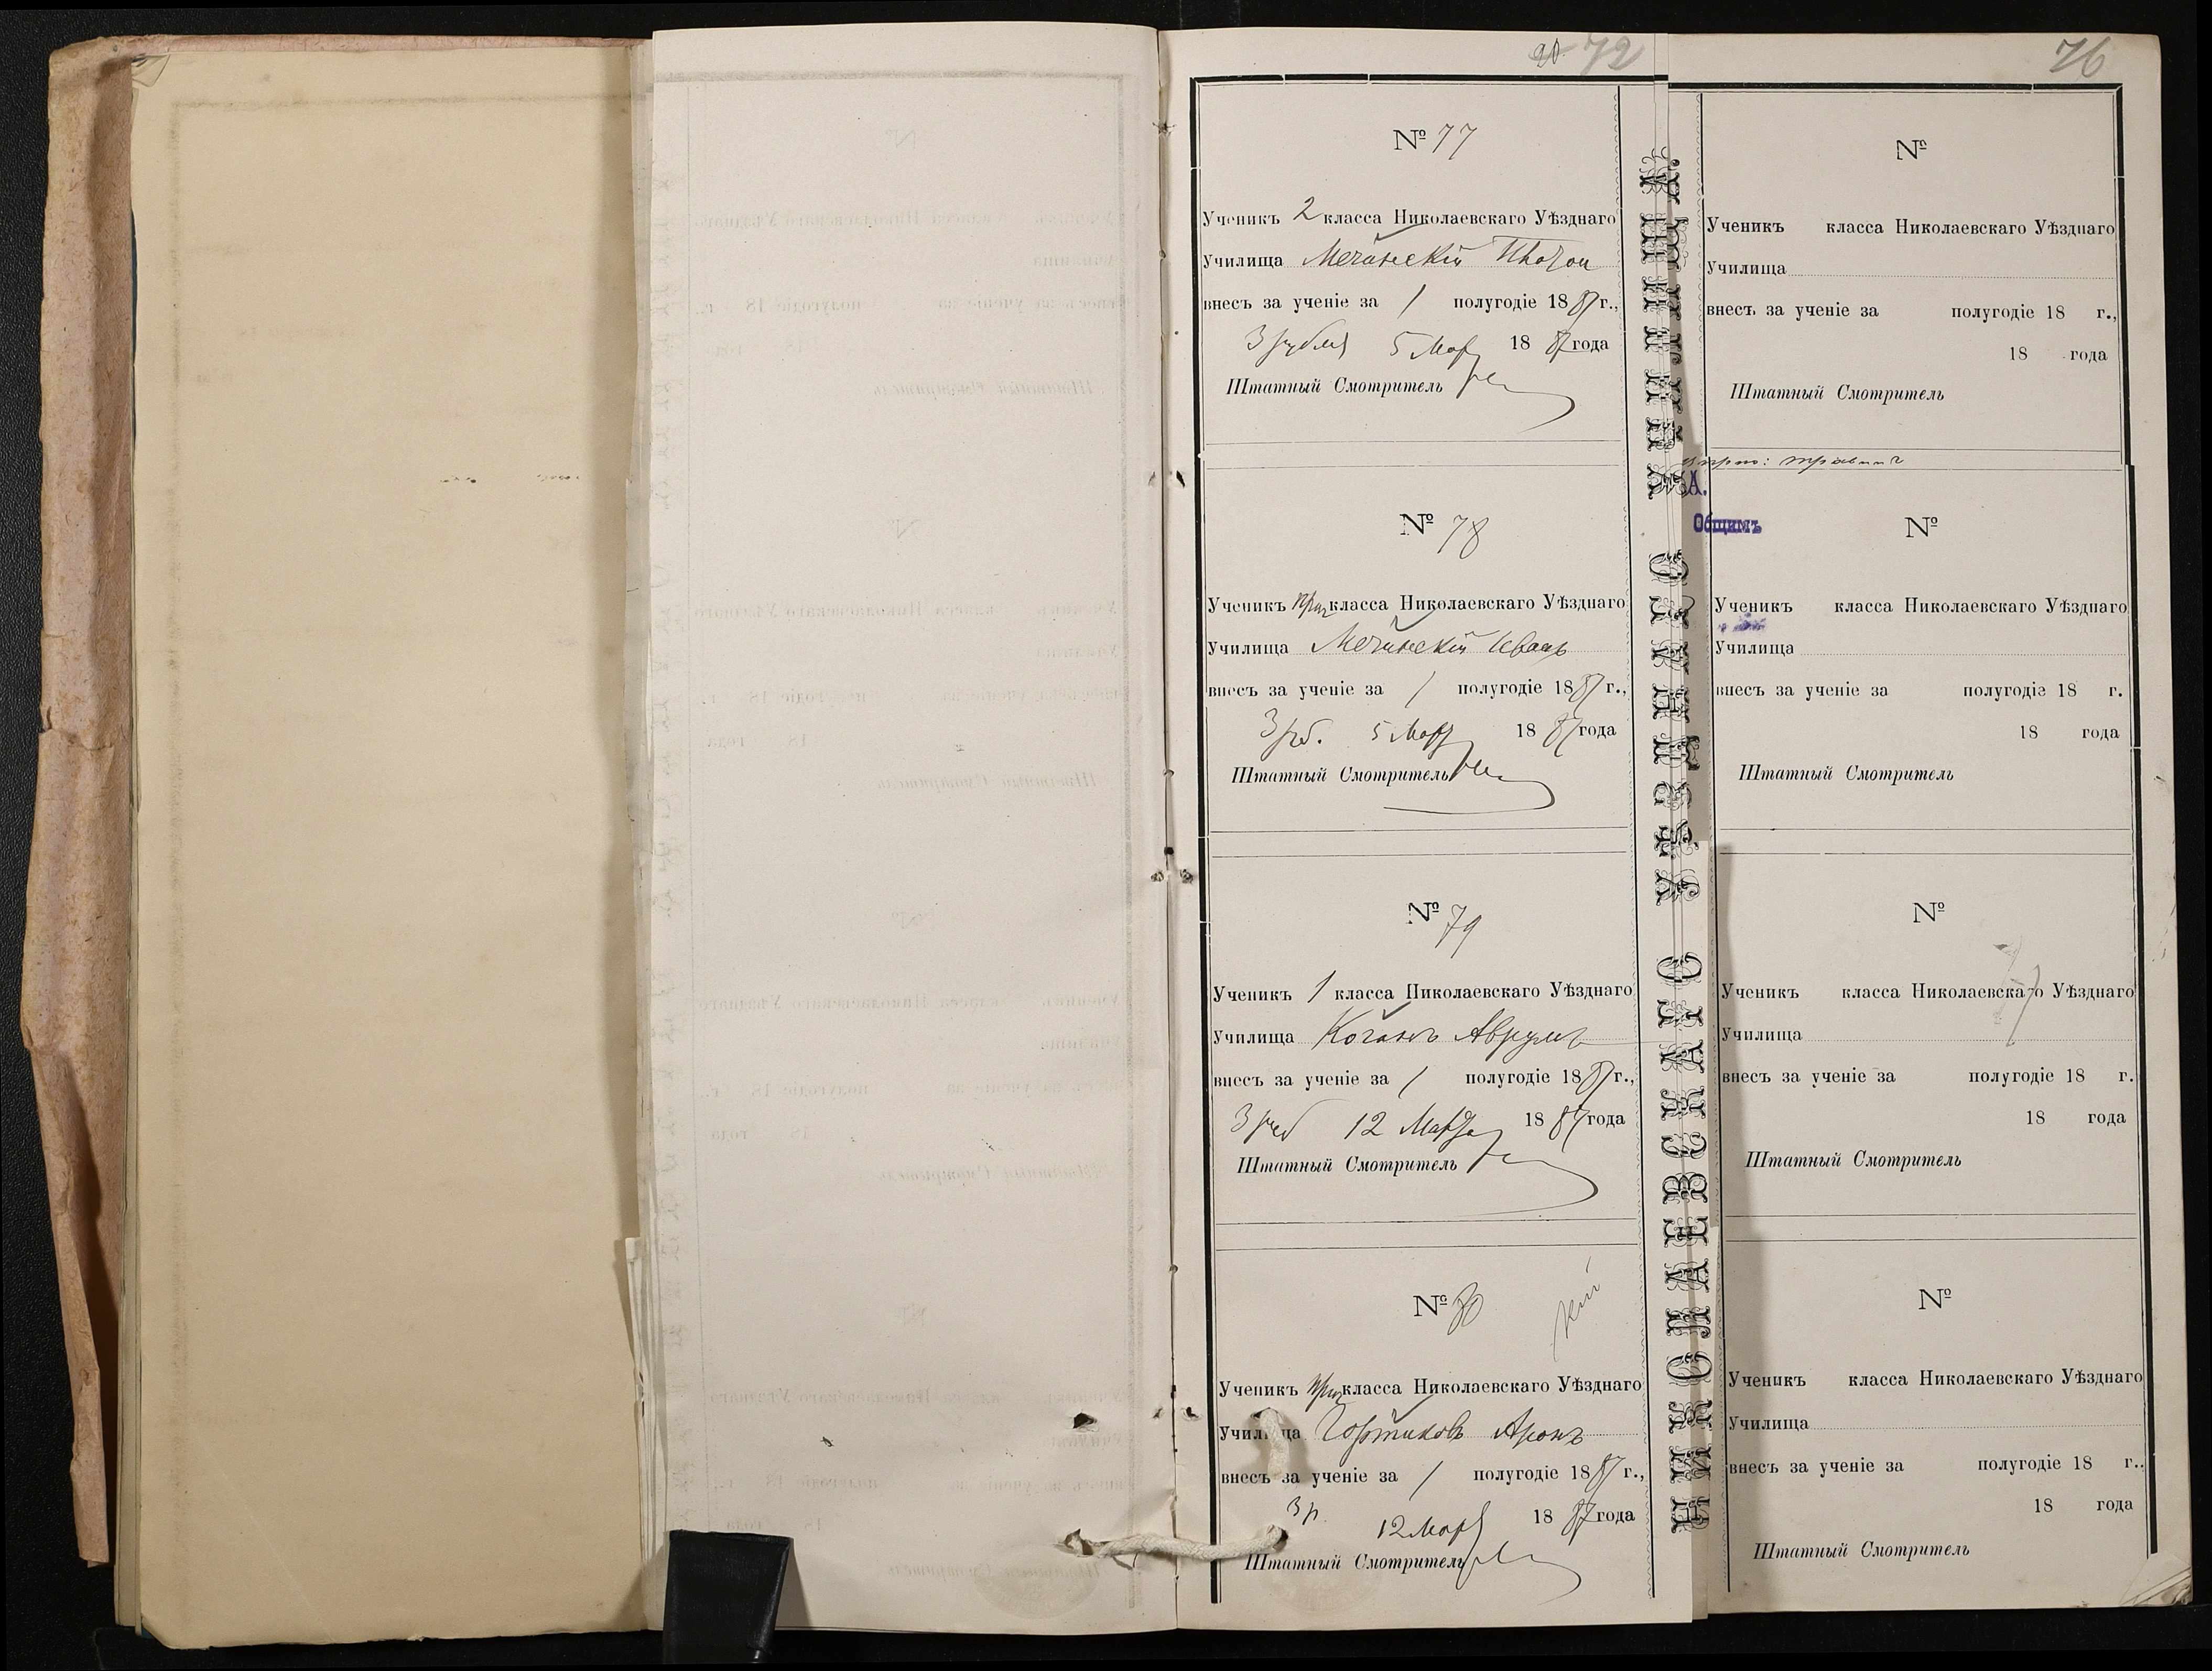 72
№ 77
Ученикъ 2 класса Николаевскаго Уѣзднаго
Училища
внесъ за ученіе за 1 полугодіе 1887 г.,
3 рубля 5 Мар 1887 года
Штатный Смотритель
№ 78
Ученикъ приг класса Николаевскаго Уѣзднаго
Училища Иванъ
внесъ за ученіе за 1 полугодіе 1887 г.,
3 руб. 5 Мар 1887 года
Штатный Смотритель
№ 79
Ученикъ 1 класса Николаевскаго Уѣзднаго
Училища Коганъ Аврумъ
внесъ за ученіе за 1 полугодіе 1887 г.,
3 руб 12 Марта 1887 года
Штатный Смотритель
№ 80
Ученикъ приг класса Николаевскаго Уѣзднаго
Училища Гортиковъ Аронъ
внесъ за ученіе за 1 полугодіе 1887 г.,
3 р. 12 Мар 1887 года
Штатный Смотритель
НИКОЛАЕВСКАГО УѢЗДНАГО УЧИЛИЩА.
76
№
Ученикъ класса Николаевскаго Уѣзднаго
Училища
внесъ за ученіе за полугодіе 18 г.,
18 года
Штатный Смотритель
А.
Общимъ
№
Ученикъ класса Николаевскаго Уѣзднаго
Училища
внесъ за ученіе за полугодіе 18 г.
18 года
Штатный Смотритель
№
Ученикъ класса Николаевскаго Уѣзднаго
Училища
внесъ за ученіе за полугодіе 18 г.
18 года
Штатный Смотритель
№
Ученикъ класса Николаевскаго Уѣзднаго
Училища
внесъ за ученіе за полугодіе 18 г..
18 года
Штатный Смотритель